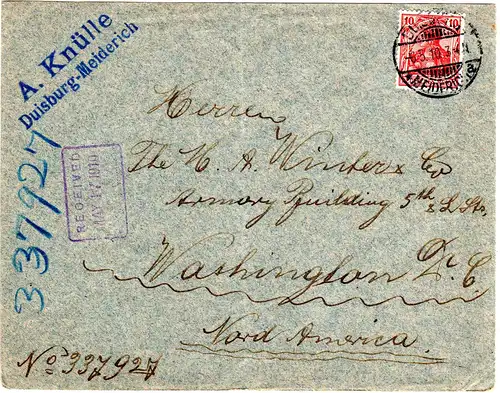 A. Knülle
Duisburg-Meiderich
337927
RECEIVED
MAY 17 1910
10 10
MEIDERICH
Herren
The H. A. Winter & Co
Armory Building 5th & L Sts.
Washington D. C.
Nord America.
No. 337927